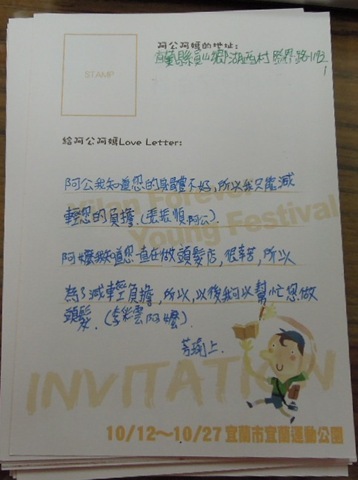 阿公阿嬤的地址:
STAMP
給阿公阿嬤Love Letter:
阿公我知道您的身體不好,所以我又能減
輕您的負擔.(張振順阿公).
Forever
Young Festival
阿嬤我知道您一直在做頭髮店,很辛苦,所以
為了減輕負擔,所以,以後我可以幫忙您做
頭髮.(李彩雲阿嬤)
上.
INVITATION
10/12~10/27 宜蘭市宜蘭運動公園